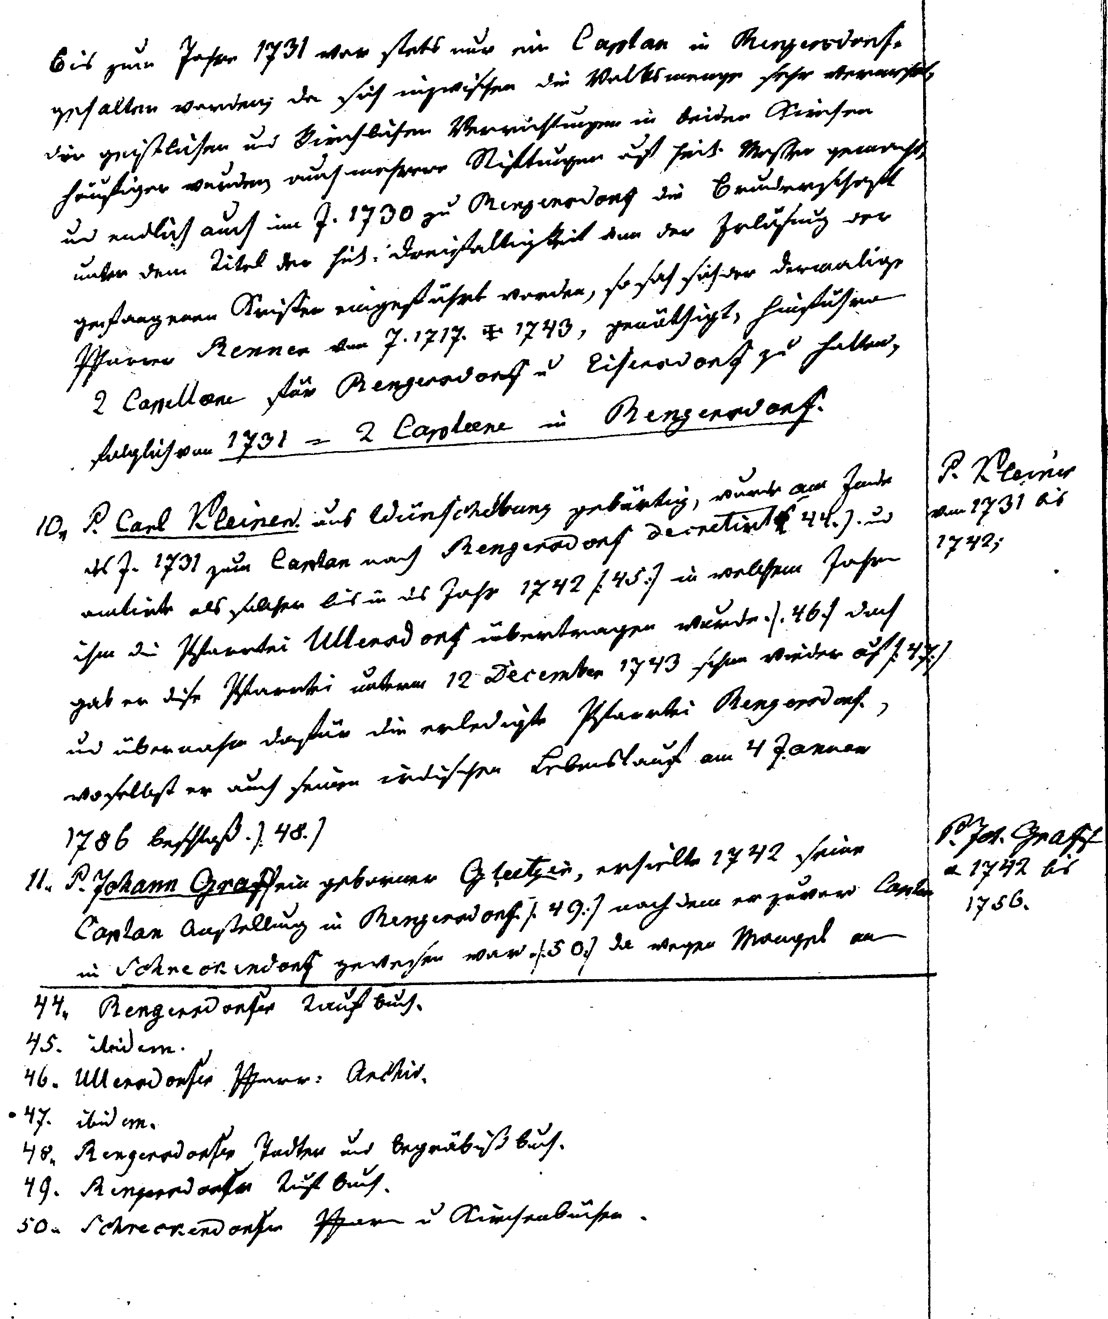 Bis zum Jahre 1731 war stets nur ein Caplan in Rengersdorf
gehalten worden; da sich inzwischen die Volksmenge sehr vermehrt,
die geistlichen und kirchlichen Verrichtungen in beiden Kirchen
häufiger wurden, auch mehrere Stiftungen auf heil. Messen gemacht,
und endlich auch im J. 1730 zu Rengersdorf die Bruderschaft
unter dem Titel der heil. Dreifaltigkeit von der Erlösung der
gefangenen Kristen eingeführt worden, so sah sich der dermalige
Pfarrer Renner von J. 1717. ‡ 1743, genöthigt, hinführo
2 Capellane für Rengersdorf u Eisersdorf zu halten,
folglich von 1731 = 2 Caplaene in Rengersdorf.
10. P. Carl Kleiner aus Wünschelburg gebürtig, wurde am Ende
des J. 1731 zum Caplan nach Rengersdorf decretirt /: 44. :/ und
amtirte als solcher bis in das Jahr 1742 /: 45 :/ in welchem Jahre
ihm die Pfarrtei Ullersdorf übertragen wurde. /: 46 :/ doch
gab er diese Pfarrtei unterm 12 December 1743 schon wieder auf /: 47 :/
und übernahm dafür die erledigte Pfarrtei Rengersdorf,
woselbst er auch seinen irdischen Lebenslauf am 4 Januar
1786 beschloß. /: 48. :/
P. Kleiner
von 1731 bis
1742;
11. P. Johann Graff ein geborner Glatzer, erhielte 1742 seine
Caplan Anstellung in Rengersdorf /: 49 :/ nachdem er zuvor Caplan
in Schreckendorf gewesen war. /: 50 :/ da wegen Mangel an
P. Joh. Graff
a 1742 bis
1756.
44. Rengersdorfer Taufbuch.
45. ibidem.
46. Ullersdorfer Pfarr: Archiv.
47. ibidem.
48. Rengersdorfer Todten und Begräbniß buch.
49. Rengersdorfer Taufbuch.
50. Schreckendorfer Pfarr u Kirchenbücher.